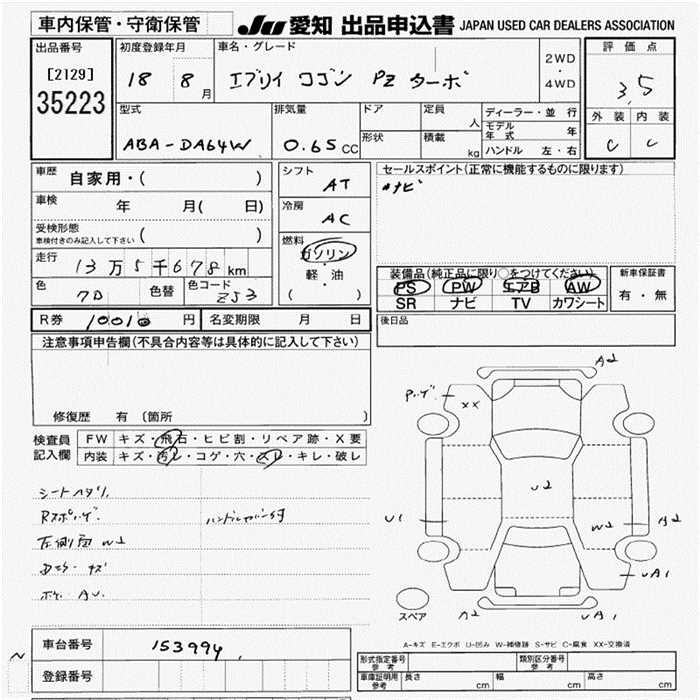 車内保管・守衛保管
JU 愛知 出品申込書 JAPAN USED CAR DEALERS ASSOCIATION
出品番号
[2129]
35223
初度登録年月
18 8月
車名・グレード
エブリイ ワゴン PZ ターボ
2WD
・
4WD
評価点
3.5
外装 内装
C C
型式
ABA-DA64W
排気量
0.65 CC
ドア
形状
定員
人
積載
kg
ディーラー・並行
モデル年式 年
ハンドル 左・右
車歴
自家用・( )
車検
年 月( 日)
受検形態
車検付きのみ記入して下さい ( )
走行
13万5千678km
色
色替
色コード
ZJ3
シフト
AT
冷房
AC
燃料
ガソリン
・
軽・油
( )
セールスポイント(正常に機能するものに限ります)
ナビ
装備品(純正品に限り○をつけてください)
PS PW エアB AW
SR ナビ TV カワシート
新車保証書
有・無
R券 10010円
名変期限 月 日
後日品
注意事項申告欄(不具合内容等は具体的に記入して下さい)
修復歴 有 〔箇所 〕
検査員
記入欄
FW キズ・飛石・ヒビ割・リペア跡・X要
内装 キズ・汚レ・コゲ・穴・スレ・キレ・破レ
シートヘタリ
左側面 W2
A2
XX
U2
U1
W2
A2
UA1
A2
UA1
スペア
A-キズ E-エクボ U-凹み W-補修跡 S-サビ C-腐食 XX-交換済
車台番号
153994
登録番号
型式指定番号
参考
類別区分番号
参考
車庫証明用
参考
長さ cm
幅 cm
高さ cm